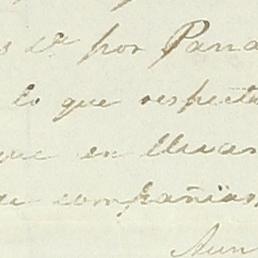 por Pana
lo que respecta
que en llevar
compañias
Aun